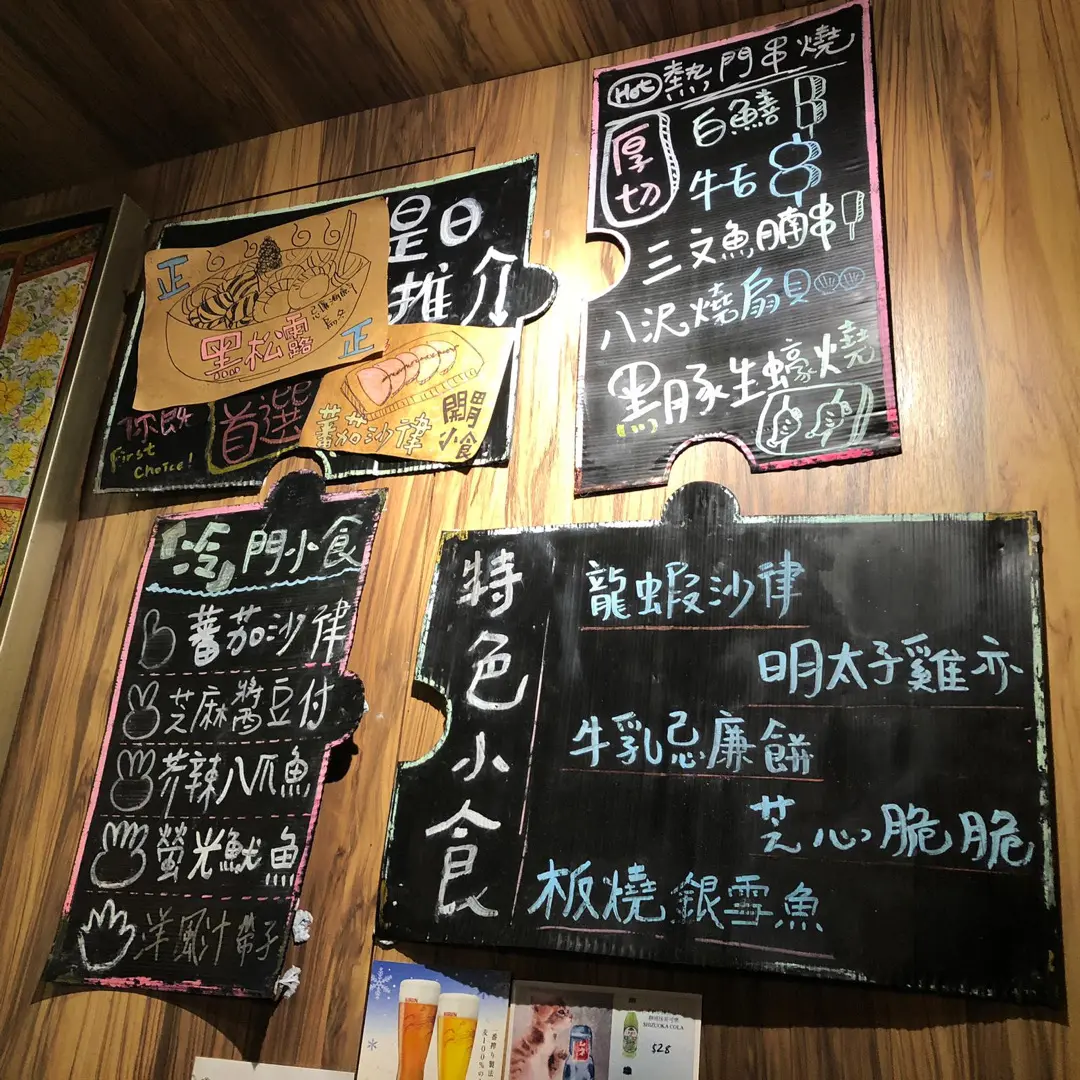 Hot 熱門串燒
厚切
白鱔
牛舌
三文魚腩串
八沢燒扇貝
黑豚生蠔燒
是日
推介
正
黑松露
正
蕃茄沙律
開胃
小食
首選
First
Choice!
冷門小食
蕃茄沙律
芝麻醬豆付
芥辣八爪魚
螢光魷魚
洋風汁帶子
特色小食
龍蝦沙律
明太子雞亦
牛乳忌廉餅
芝心脆脆
板燒銀雪魚
KIRIN
KIRIN
一番搾り製法
麦100%の
SHIZUOKA COLA
$28